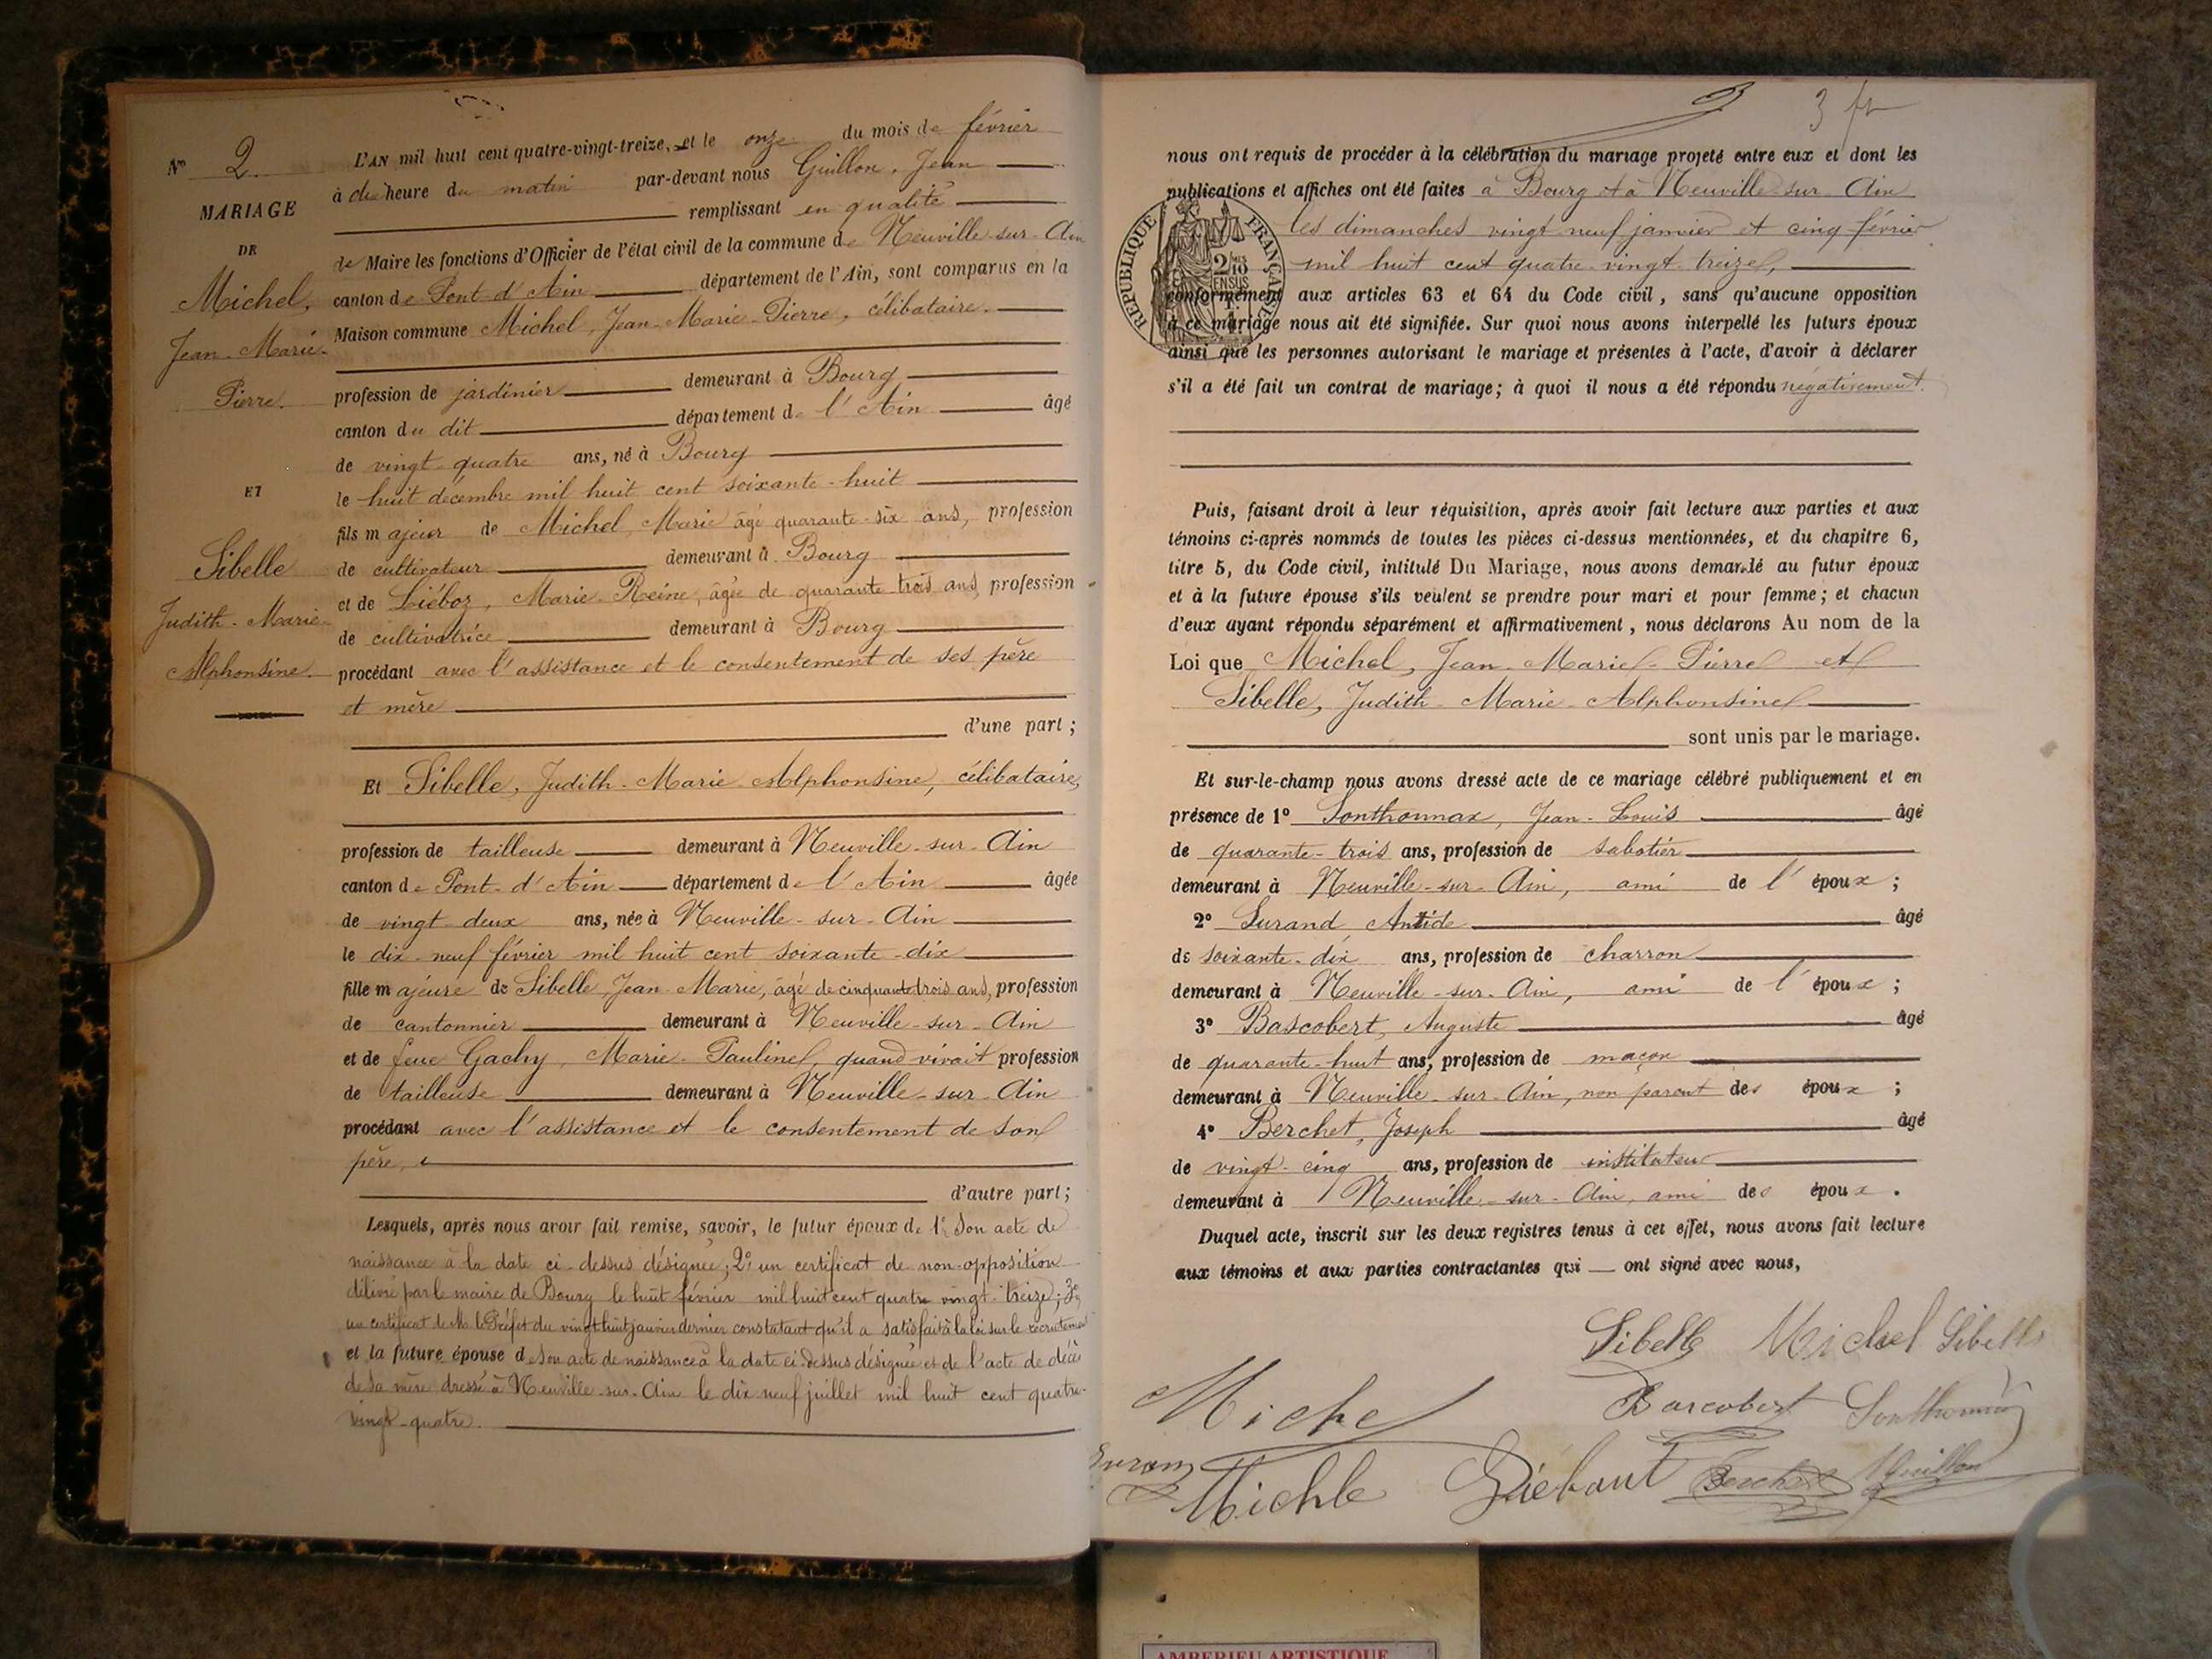 Nº 2.
MARIAGE
DE
Michel,
Jean-Marie-
Pierre.
ET
Sibelle
Judith-Marie-
Alphonsine.
L'AN mil huit cent quatre-vingt-treize, et le onze du mois de février
à dix heure du matin par-devant nous Guillon, Jean
remplissant en qualité
de Maire les fonctions d'Officier de l'état civil de la commune de Neuville-sur-Ain
canton de Pont-d'Ain département de l'Ain, sont comparus en la
Maison commune Michel, Jean-Marie-Pierre, célibataire.
profession de jardinier demeurant à Bourg
canton du dit département de l'Ain âgé
de vingt-quatre ans, né à Bourg
le huit décembre mil huit cent soixante-huit
fils majeur de Michel, Marie âgé quarante-six ans, profession
de cultivateur demeurant à Bourg
et de Liéboz, Marie-Reine, âgée de quarante-trois ans, profession
de cultivatrice demeurant à Bourg
procédant avec l'assistance et le consentement de ses père
et mère
d'une part;
Et Sibelle, Judith-Marie-Alphonsine, célibataire,
profession de tailleuse demeurant à Neuville-sur-Ain
canton de Pont-d'Ain département de l'Ain âgée
de vingt deux ans, née à Neuville-sur-Ain
le dix-neuf février mil huit cent soixante-dix
fille majeure de Sibelle, Jean-Marie, âgé de cinquante trois ans, profession
de cantonnier demeurant à Neuville-sur-Ain
et de feue Gachy, Marie-Pauline, quand vivait profession
de tailleuse demeurant à Neuville-sur-Ain
procédant avec l'assistance et le consentement de son
père,
d'autre part;
Lesquels, après nous avoir fait remise, savoir, le futur époux de 1º son acte de
naissance à la date ci-dessus désignée; 2º un certificat de non-opposition
délivré par le maire de Bourg le huit février mil huit cent quatre vingt-treize; 3º
un certificat de M. le Préfet du vingt huit janvier dernier constatant qu'il a satisfait à la loi sur le recrutement
et la future épouse de son acte de naissance à la date ci-dessus désignée et de l'acte de décès
de sa mère dressé à Neuville-sur-Ain le dix-neuf juillet mil huit cent quatre-
vingt-quatre.
3 fr
nous ont requis de procéder à la célébration du mariage projeté entre eux et dont les
publications et affiches ont été faites à Bourg et à Neuville-sur-Ain
les dimanches vingt neuf janvier et cinq février
mil huit cent quatre-vingt-treize,
RÉPUBLIQUE FRANÇAISE
2/10 EN SUS
conformément aux articles 63 et 64 du Code civil, sans qu'aucune opposition
à ce mariage nous ait été signifiée. Sur quoi nous avons interpellé les futurs époux
ainsi que les personnes autorisant le mariage et présentes à l'acte, d'avoir à déclarer
s'il a été fait un contrat de mariage; à quoi il nous a été répondu négativement.
Puis, faisant droit à leur réquisition, après avoir fait lecture aux parties et aux
témoins ci-après nommés de toutes les pièces ci-dessus mentionnées, et du chapitre 6,
titre 5, du Code civil, intitulé Du Mariage, nous avons demandé au futur époux
et à la future épouse s'ils veulent se prendre pour mari et pour femme; et chacun
d'eux ayant répondu séparément et affirmativement, nous déclarons Au nom de la
Loi que Michel, Jean-Marie-Pierre et
Sibelle, Judith-Marie-Alphonsine
sont unis par le mariage.
Et sur-le-champ nous avons dressé acte de ce mariage célébré publiquement et en
présence de 1º Sonthonnax, Jean-Louis âgé
de quarante-trois ans, profession de sabotier
demeurant à Neuville-sur-Ain, ami de l'époux;
2º Durand Antide âgé
de soixante-dix ans, profession de charron
demeurant à Neuville-sur-Ain, ami de l'époux;
3º Bascobert, Auguste âgé
de quarante-huit ans, profession de maçon
demeurant à Neuville-sur-Ain, non parent des époux;
4º Berchet, Joseph âgé
de vingt-cinq ans, profession de instituteur
demeurant à Neuville-sur-Ain, ami des époux.
Duquel acte, inscrit sur les deux registres tenus à cet effet, nous avons fait lecture
aux témoins et aux parties contractantes qui ont signé avec nous,
Sibelle Michel Sibelle
Miche
Barcobert Sonthonnax
Michle Liébaut Berchet Guillon
AMBERIEU ARTISTIQUE